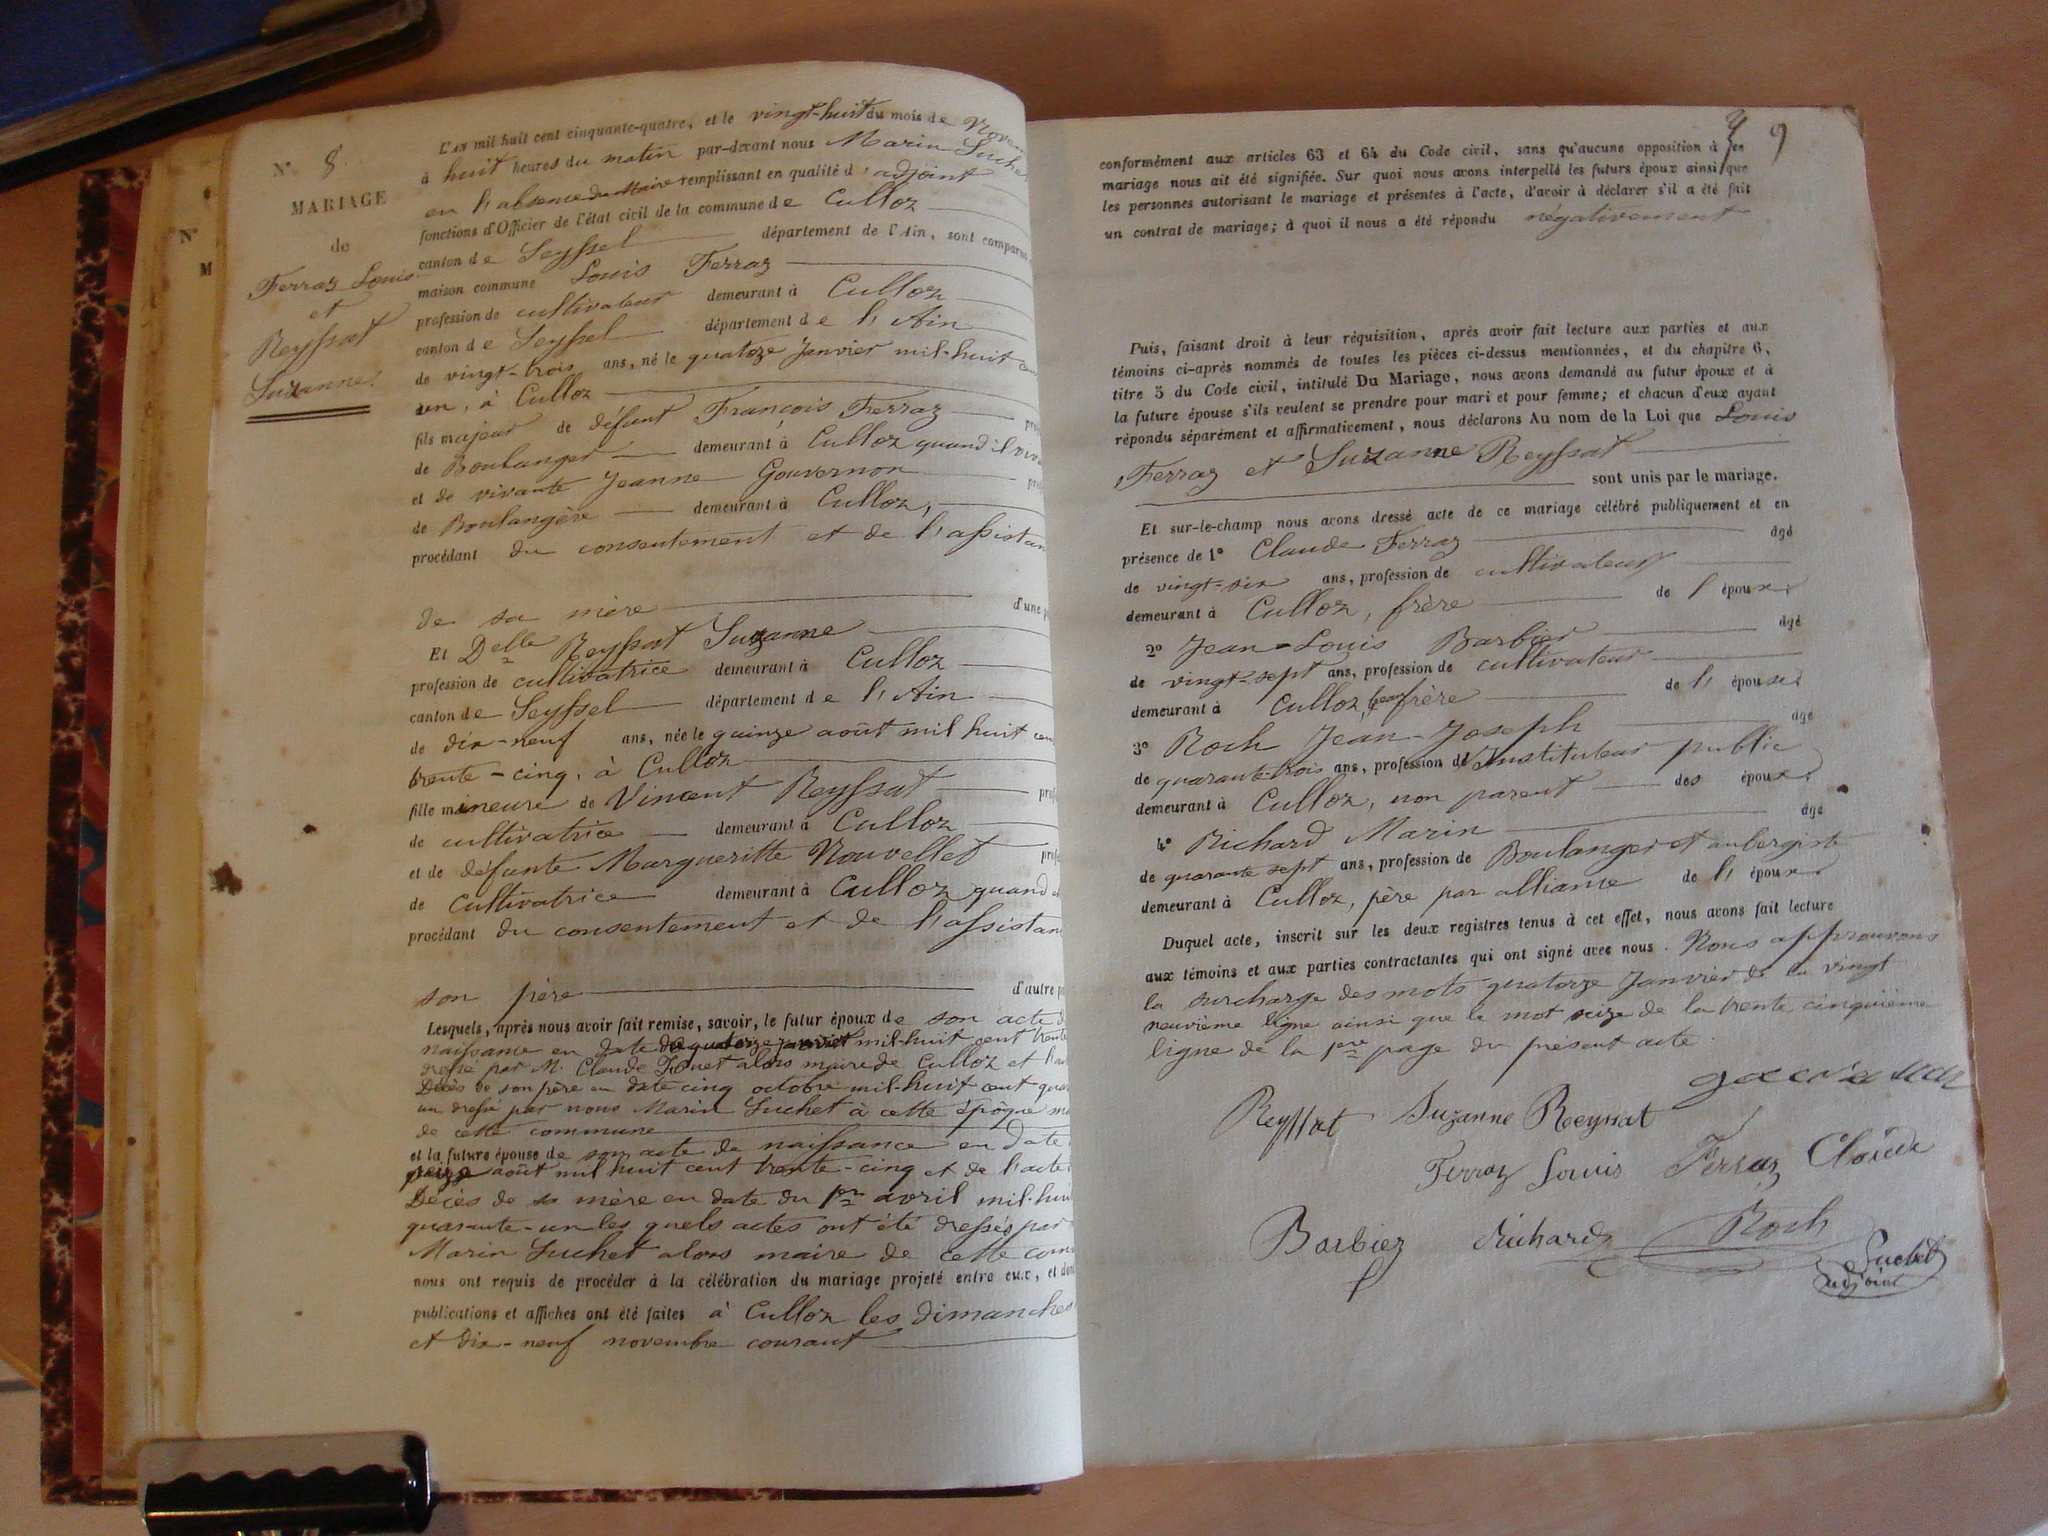 N° 8
MARIAGE
de
Ferraz Louis
et
Reyssat
Suzanne.
N°
M
L'an mil huit cent cinquante-quatre, et le vingt-huit du mois de Novem
à huit heures du matin par-devant nous Marin Suchet
en l'absence du Maire remplissant en qualité d'adjoint
fonctions d'Officier de l'état civil de la commune de Culloz
canton de Seyssel département de l'Ain, sont comparus
maison commune Louis Ferraz
profession de cultivateur demeurant à Culloz
canton de Seyssel département de l'Ain
de vingt-trois ans, né le quatoze Janvier mil-huit cent
un, à Culloz
fils majeur de défunt François Ferraz
de Boulanger demeurant à Culloz quand il viv
et de vivante Jeanne Gouvernon
de Boulangère demeurant à Culloz,
procédant du consentement et de l'assistan
de sa mère d'une p
Et Delle Reyssat Suzanne
profession de cultivatrice demeurant à Culloz
canton de Seyssel département de l'Ain
de dix-neuf ans, née le quinze août mil huit cen
trente-cinq, à Culloz
fille mineure de Vincent Reyssat
de cultivatrice demeurant à Culloz
et de défunte Margueritte Nouvellet
de Cultivatrice demeurant à Culloz quand
procédant du consentement et de l'assistan
son père d'autre p
Lesquels, après nous avoir fait remise, savoir, le futur époux de son acte d
naissance en date de quatorze janvier mil-huit cent trente
dressé par M. Claude alors maire de Culloz et
Décès de son père en date cinq octobre mil-huit cent quar
un dressé par nous Marin Suchet à cette époque m
de cette commune
et la future épouse de son acte de naissance en date
seize août mil huit cent trente-cinq et de l'acte
Décès de sa mère en date du 1er avril mil-hui
quarante-un les quels actes ont été dressés par
Marin Suchet alors maire de cette com
nous ont requis de procéder à la célébration du mariage projeté entre eux, et don
publications et affiches ont été faites à Culloz les dimanches
et dix-neuf novembre courant
9
conformément aux articles 63 et 64 du Code civil, sans qu'aucune opposition à ce
mariage nous ait été signifiée. Sur quoi nous avons interpellé les futurs époux ainsi que
les personnes autorisant le mariage et présentes à l'acte, d'avoir à déclarer s'il a été fait
un contrat de mariage; à quoi il nous a été répondu négativement
Puis, faisant droit à leur réquisition, après avoir fait lecture aux parties et aux
témoins ci-après nommés de toutes les pièces ci-dessus mentionnées, et du chapitre 6,
titre 5 du Code civil, intitulé Du Mariage, nous avons demandé au futur époux et à
la future épouse s'ils veulent se prendre pour mari et pour femme; et chacun d'eux ayant
répondu séparément et affirmativement, nous déclarons Au nom de la Loi que Louis
Ferraz et Suzanne Reyssat
sont unis par le mariage.
Et sur-le-champ nous avons dressé acte de ce mariage célébré publiquement et en
présence de 1° Claude Ferraz âgé
de vingt-six ans, profession de cultivateur
demeurant à Culloz, frère de l'époux.
2° Jean-Louis Barbier âgé
de vingt-sept ans, profession de cultivateur
demeurant à Culloz, beau frère de l'épouse.
3° Roch Jean-Joseph âgé
de quarante-trois ans, profession d'Instituteur public
demeurant à Culloz, non parent des époux.
4° Richard Marin âgé
de quarante sept ans, profession de Boulanger et aubergiste
demeurant à Culloz, père par alliance de l'époux.
Duquel acte, inscrit sur les deux registres tenus à cet effet, nous avons fait lecture
aux témoins et aux parties contractantes qui ont signé avec nous. Nous approuvons
la surcharge des mots quatorze Janvier de la vingt
neuvième ligne ainsi que le mot seize de la trente cinquième
ligne de la 1ere page du présent acte.
Reyssat Suzanne Reyssat
Ferraz Louis Ferraz Claude
Barbier Richard Roch
Suchet
adjoint